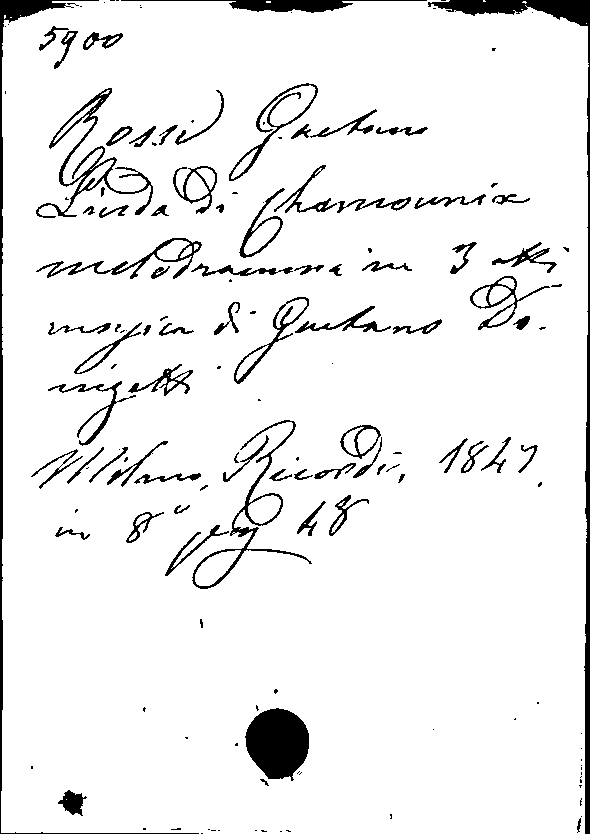 5900
Rossi Gaetano
Linda di Chamounix
melodramma in 3 atti
musica di Gaetano Do-
nizetti
Milano, Ricordi, 1847.
in 8° pag 48